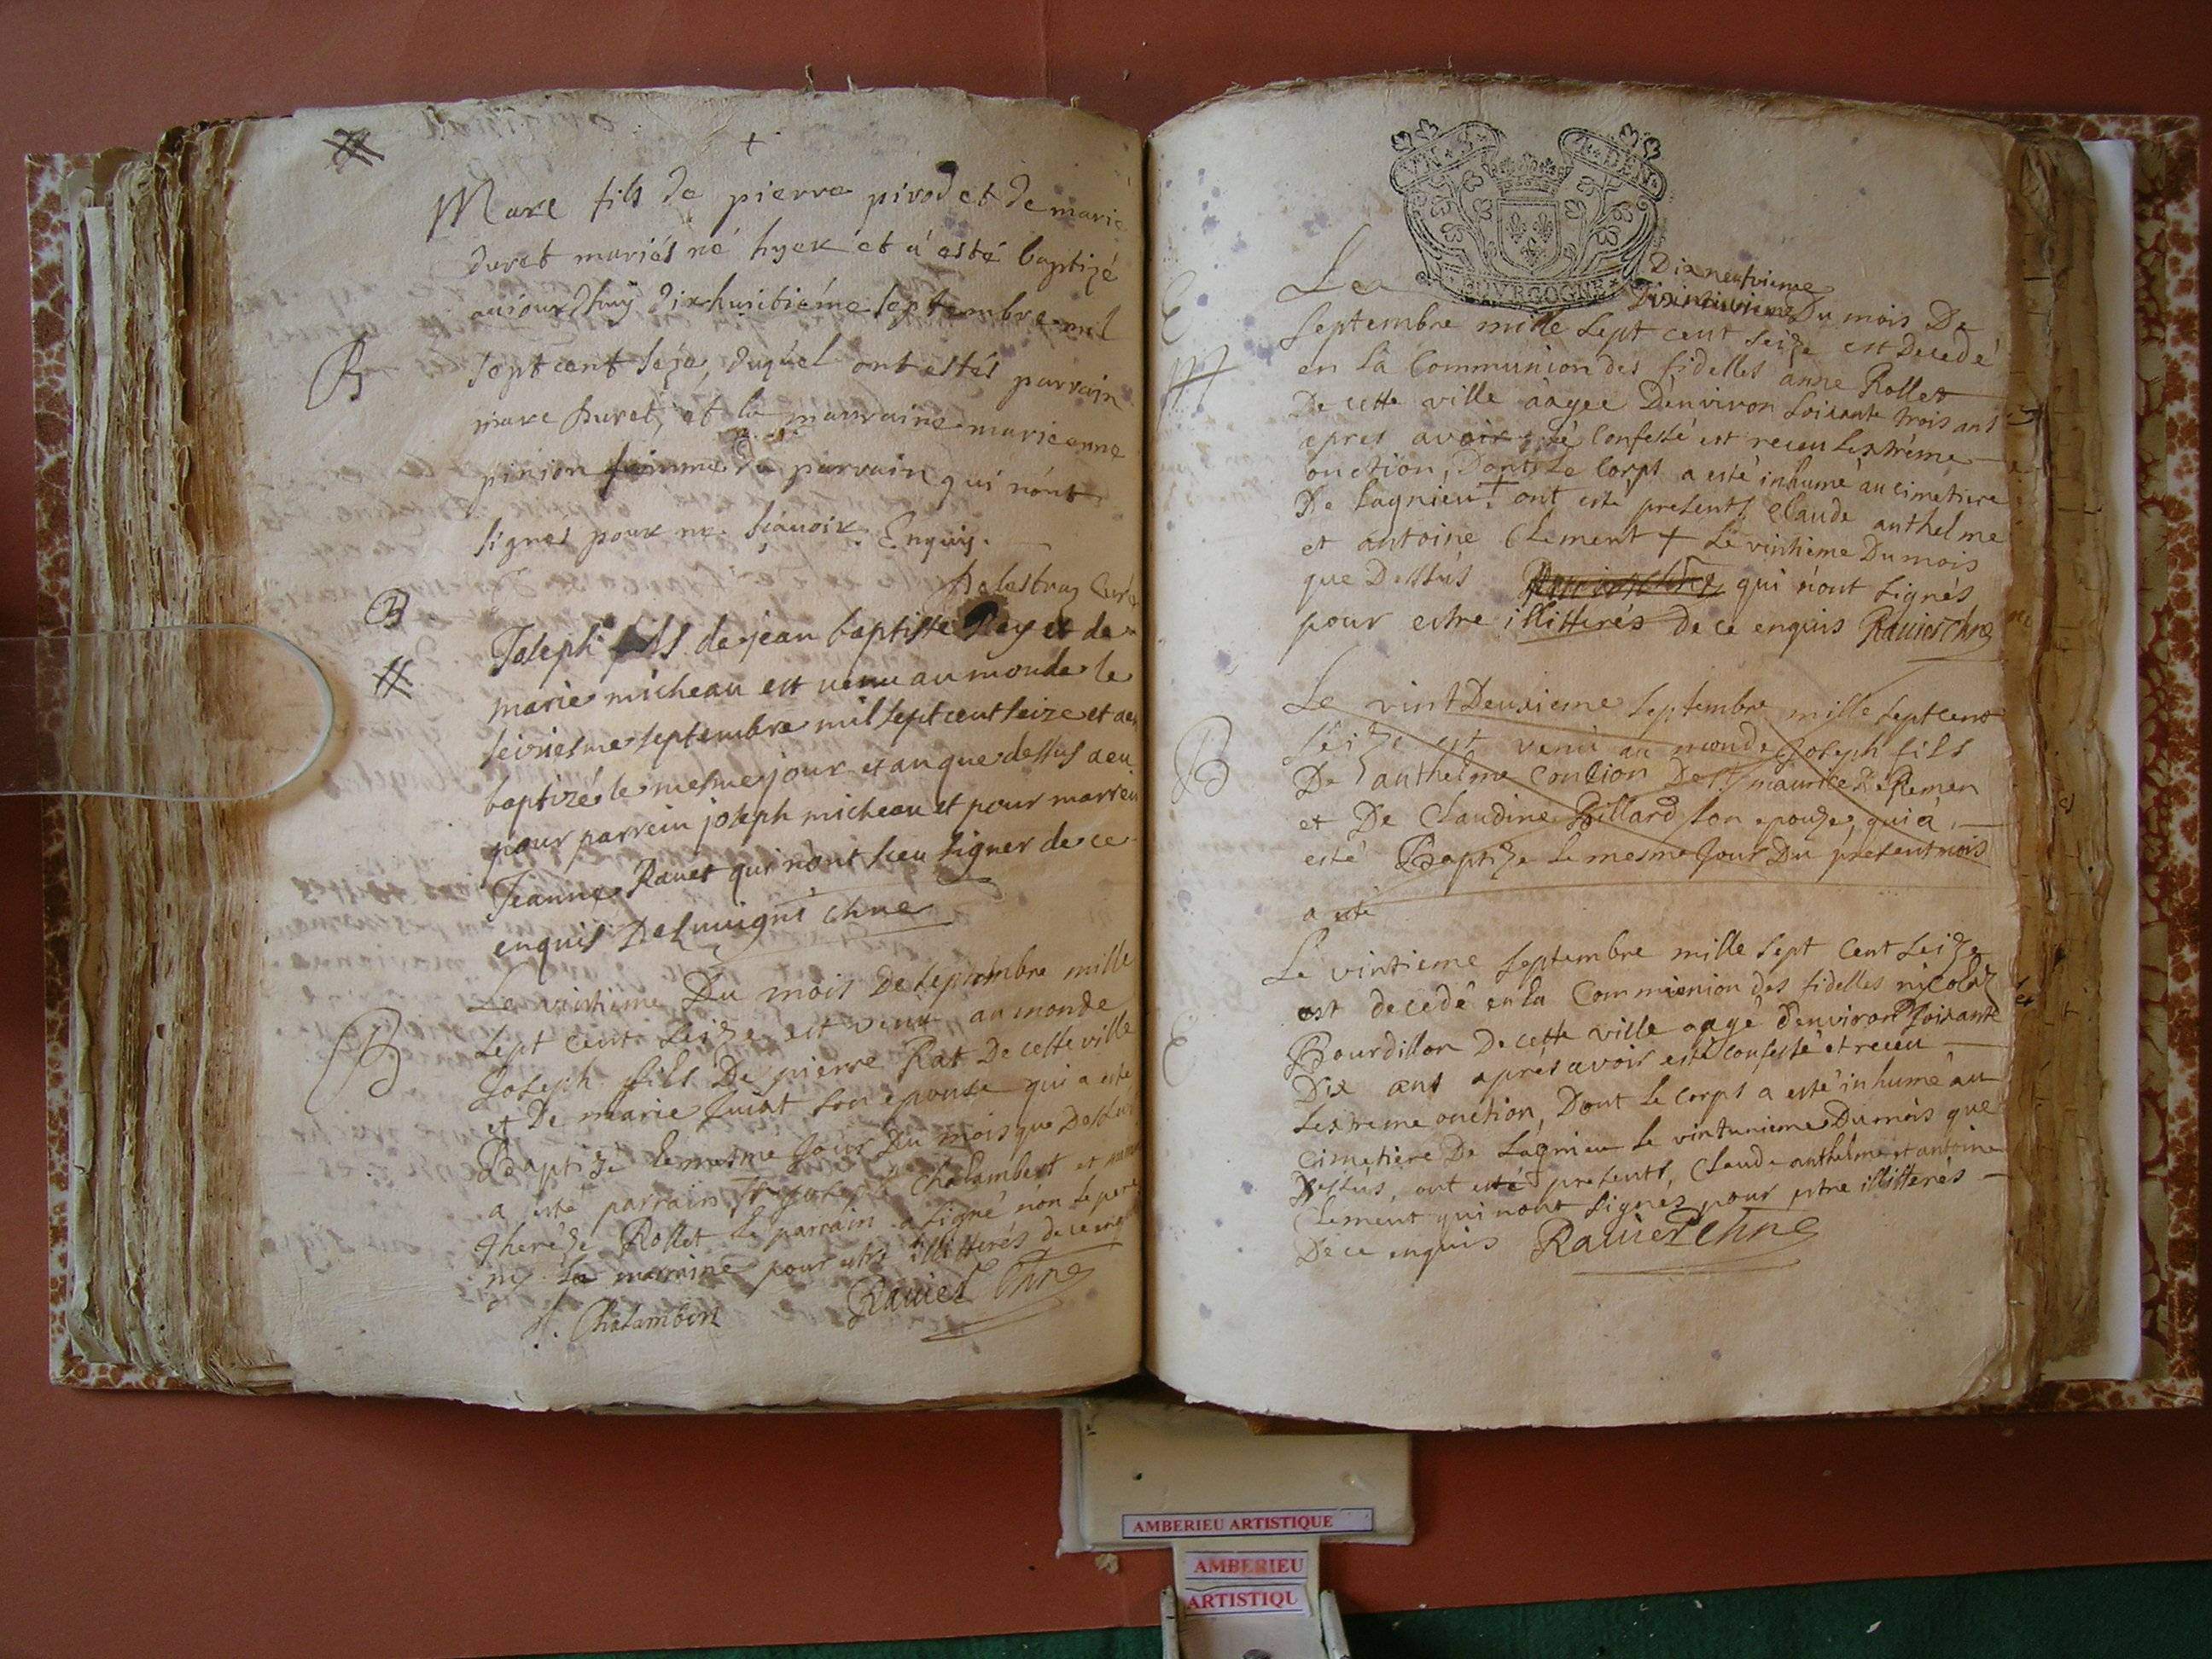 Marc fils de pierre pirod et de marie
duret mariés né hyer et a esté baptizé
aujourdhuy dixhuitiéme septembre mil
sept cent seze, duquel ont estés parrain
marc duret, et la marraine marieanne
pinion femme du parrain qui n'ont
signes pour ne sçauoir. Enquis.
Delestraz Curé
B
B
Joseph fils de jean baptiste Rey et de
marie micheau est venu au monde le
septembre mil sept cent seize et a eté
baptizé le mesme jour et an que dessus a eu
pour parrein joseph micheau et pour marreine
Jeanne Rauet qui n'ont sceu signer de ce
enquis
B
Le vintieme Du mois De septembre mille
sept cent seize est venu au monde
Joseph fils De pierre Rat De cette ville
et De marie son epouse qui a esté
Baptize le mesme Jour Du mois que Dessus
a esté parrain Joseph Chalambert et
therèze Rollet le parrain a signé non le pere
ny la marraine pour estre illitterés de ce enquis
Chalambert Rauier
VN S. 4. D. DEN.
BOVRGOGNE
E
Le Dixneufvieme
Dixneuvieme Du mois De
septembre mille sept cent seize est Decedé
en la Communion des fidelles anne Rollet
De cette ville aagee D'environ soixante trois ans
apres avoir eté Confessé est receu lextrême
onction, Dont le Corps a esté inhumé au cimetiere
De Lagnieu + ont esté presents Claude anthelme
et antoine Clement + Le vintième Du mois
que Dessus qui n'ont signés
pour estre illitterés de ce enquis Rauier
B
Le vint Deuxieme septembre mille sept cent
seize est venu au monde Joseph fils
De anthelme Coulion De St maurice De Remen
et De Claudine Billard son epouze, qui a
esté Baptize le mesme Jour Du present mois
a esté
E
Le vintieme septembre mille sept Cent seize
est decedé en la Communion des fidelles nicolas
Bourdillon De cette ville aagé d'environ soixante
Dix ans aprés avoir esté confessé et receu
lextreme onction, Dont le corps a esté inhumé au
cimetière De Lagnieu le vintunieme Du mois que
Dessus, ont esté presents, Claude anthelme et antoine
Clement qui n'ont signez pour estre illitterés
De ce enquis Rauier
AMBERIEU ARTISTIQUE
AMBERIEU
ARTISTIQU